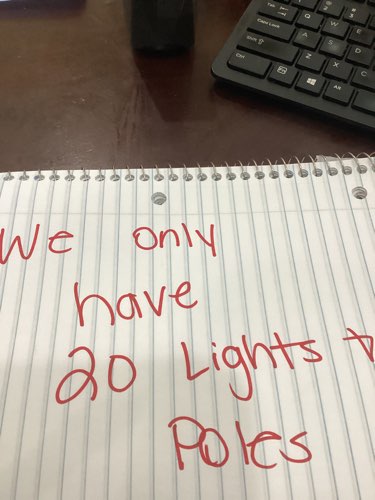 We only
have
20 Lights
Poles
Tab
Q
W
E
Caps Lock
A
S
D
Shift
Z
X
C
Ctrl
Alt